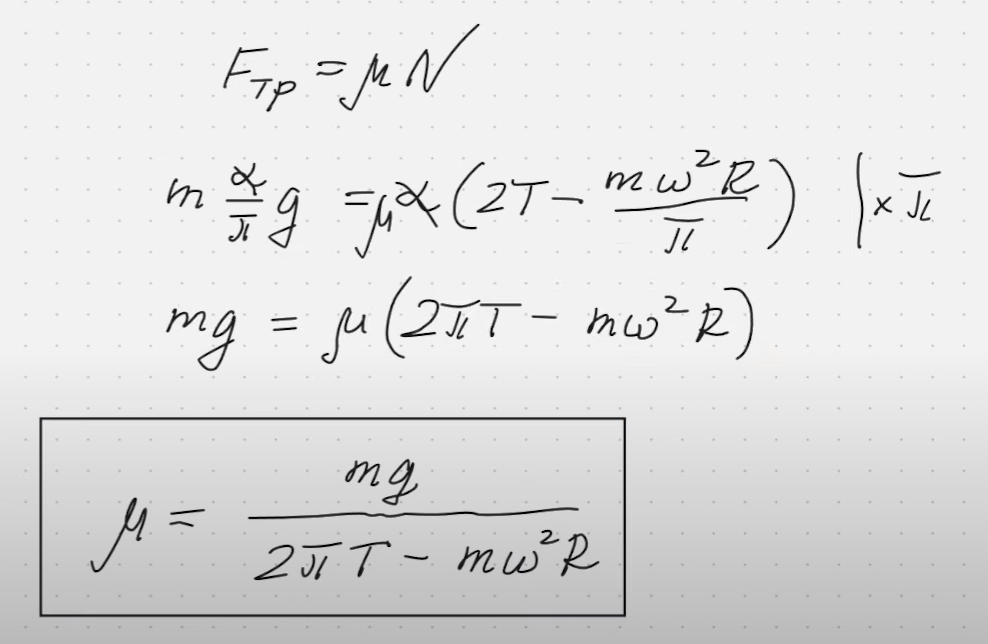 Fтр = μN
m α/π g = μα(2T − mω²R/π) | × π
mg = μ(2πT − mω²R)
μ = mg/(2πT − mω²R)